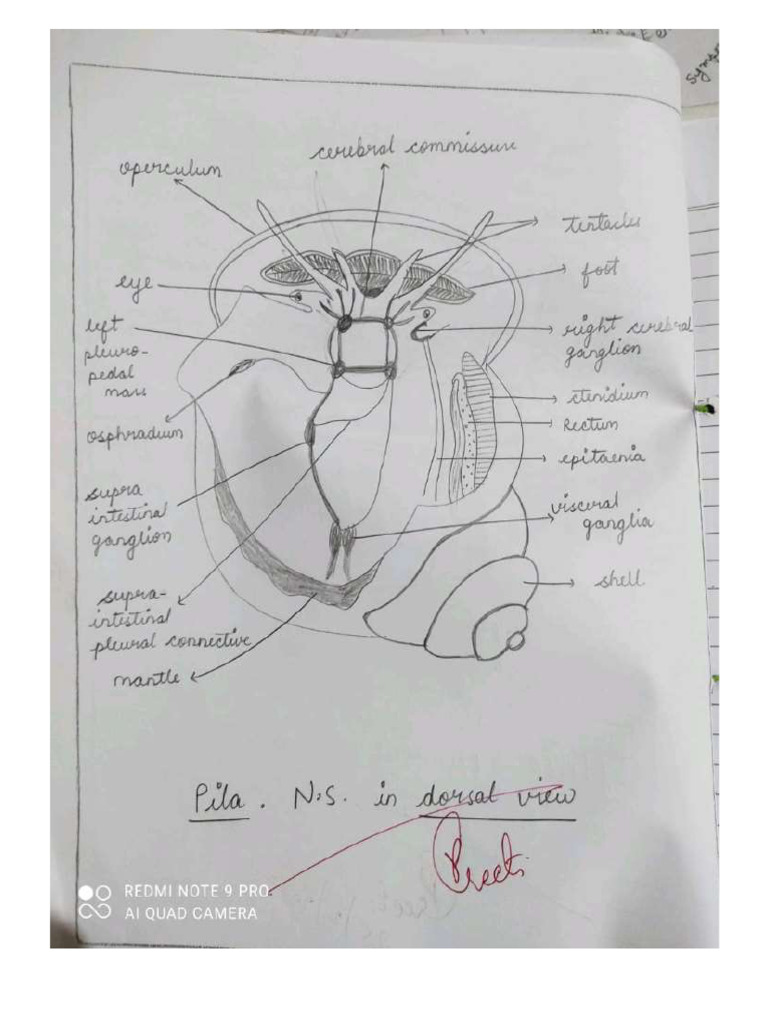 cerebral commissure
operculum
tentacles
foot
eye
left
pleuro-
pedal
mass
right cerebral
ganglion
ctenidium
Rectum
osphradium
epitaenia
supra
intestinal
ganglion
visceral
ganglia
shell
supra-
intestinal
pleural connective
mantle
Pila. N.S. in dorsal view
Preeti
REDMI NOTE 9 PRO
AI QUAD CAMERA